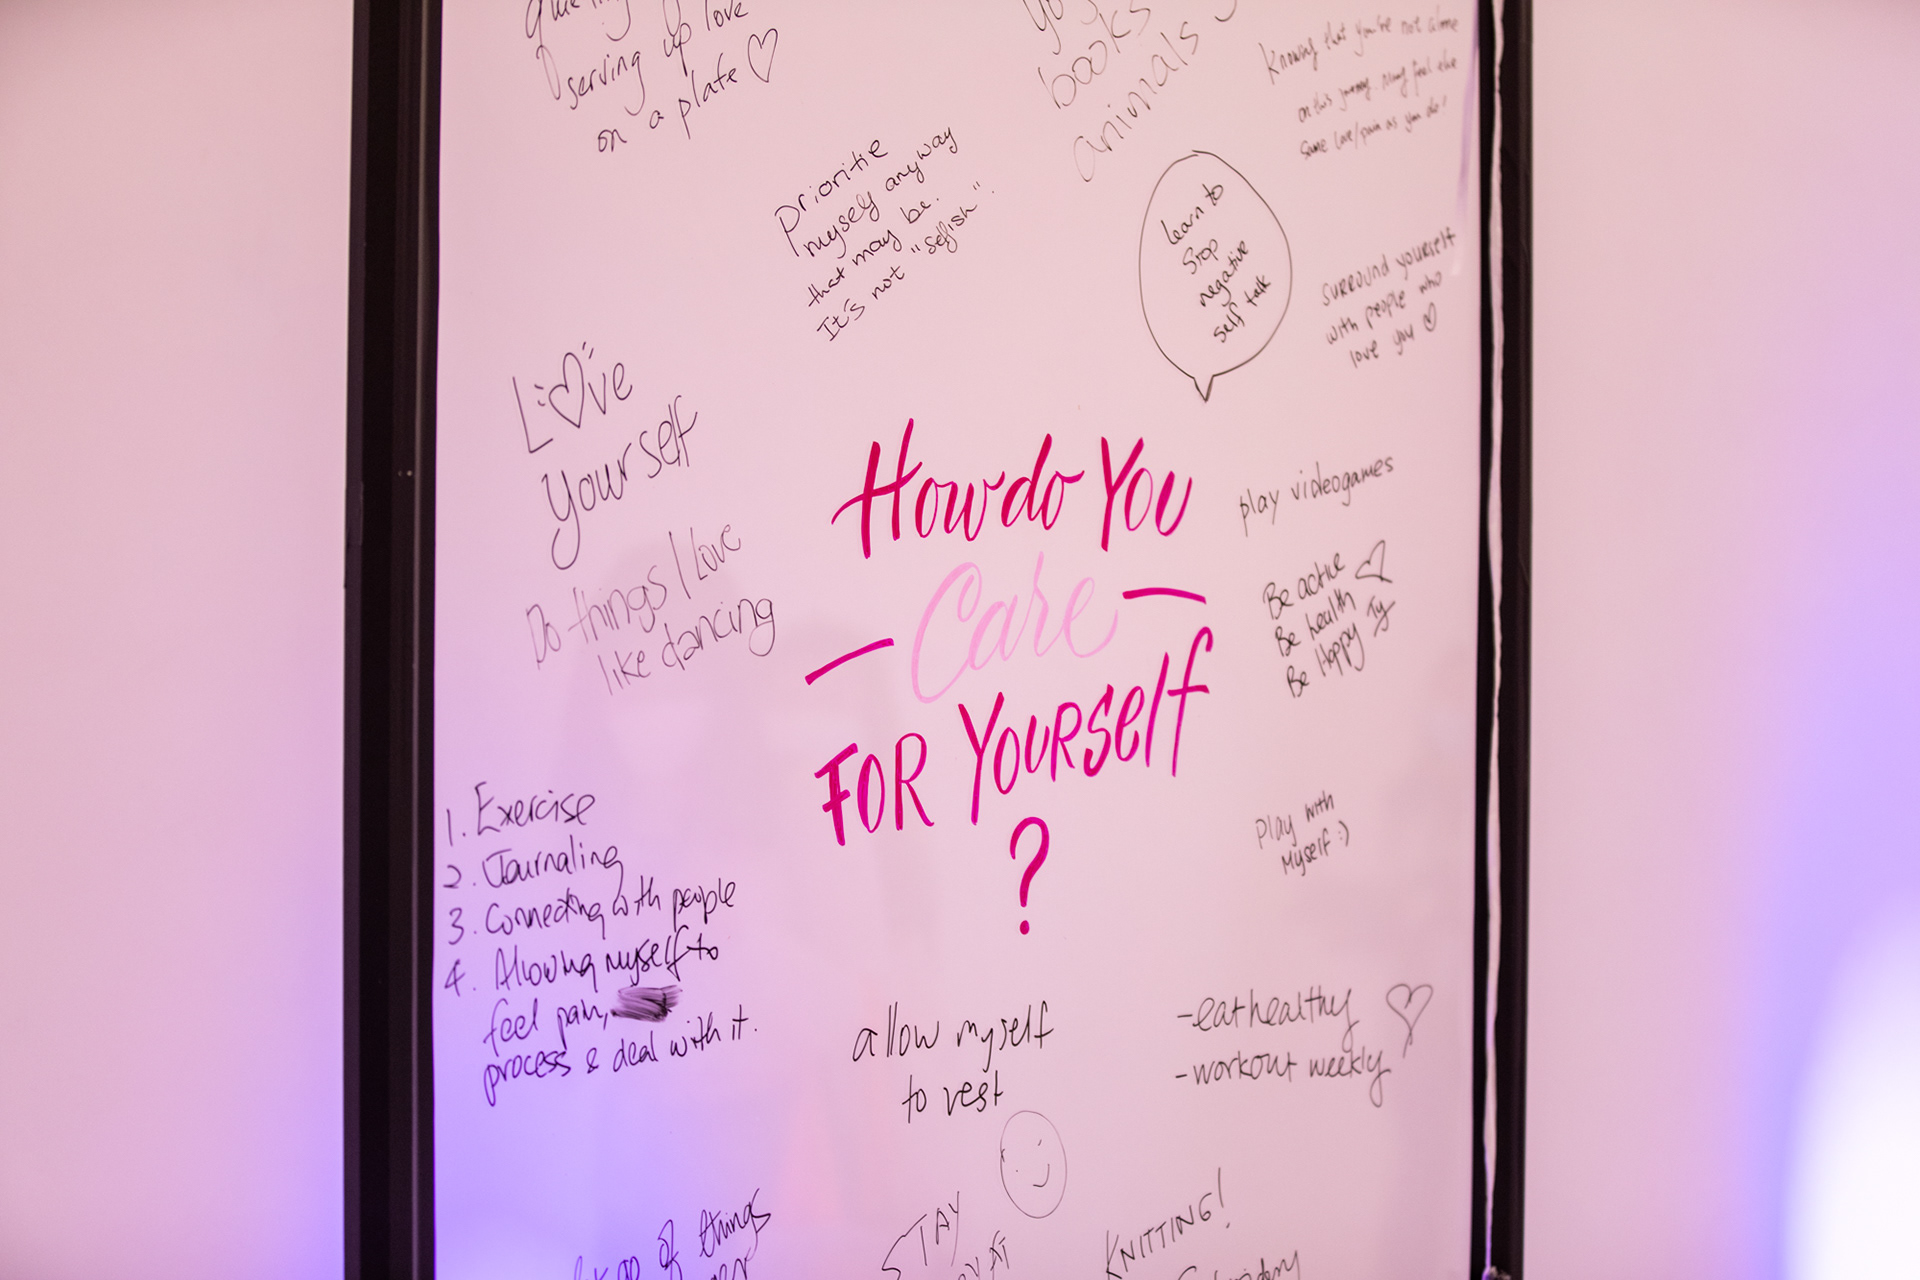 serving up love
on a plate
books
animals
Knowing that you're not alone
on this journey. Many feel the
same love/pain as you do!
Prioritie
myself anyway
that may be.
It's not "selfish".
Learn to
Stop
negative
self talk
SURROUND YOURSELF
with people who
love you
Love
Yourself
Do things I Love
like dancing
How do You
Care
FOR YOURSELF
?
play videogames
Be active
Be health
Be Happy Ty
1. Exercise
2. Journaling
3. Connecting with people
4. Allowing myself to
feel pain,
process & deal with it.
Play with
Myself :)
allow myself
to rest
- eat healthy
- workout weekly
of things
STAY
KNITTING!